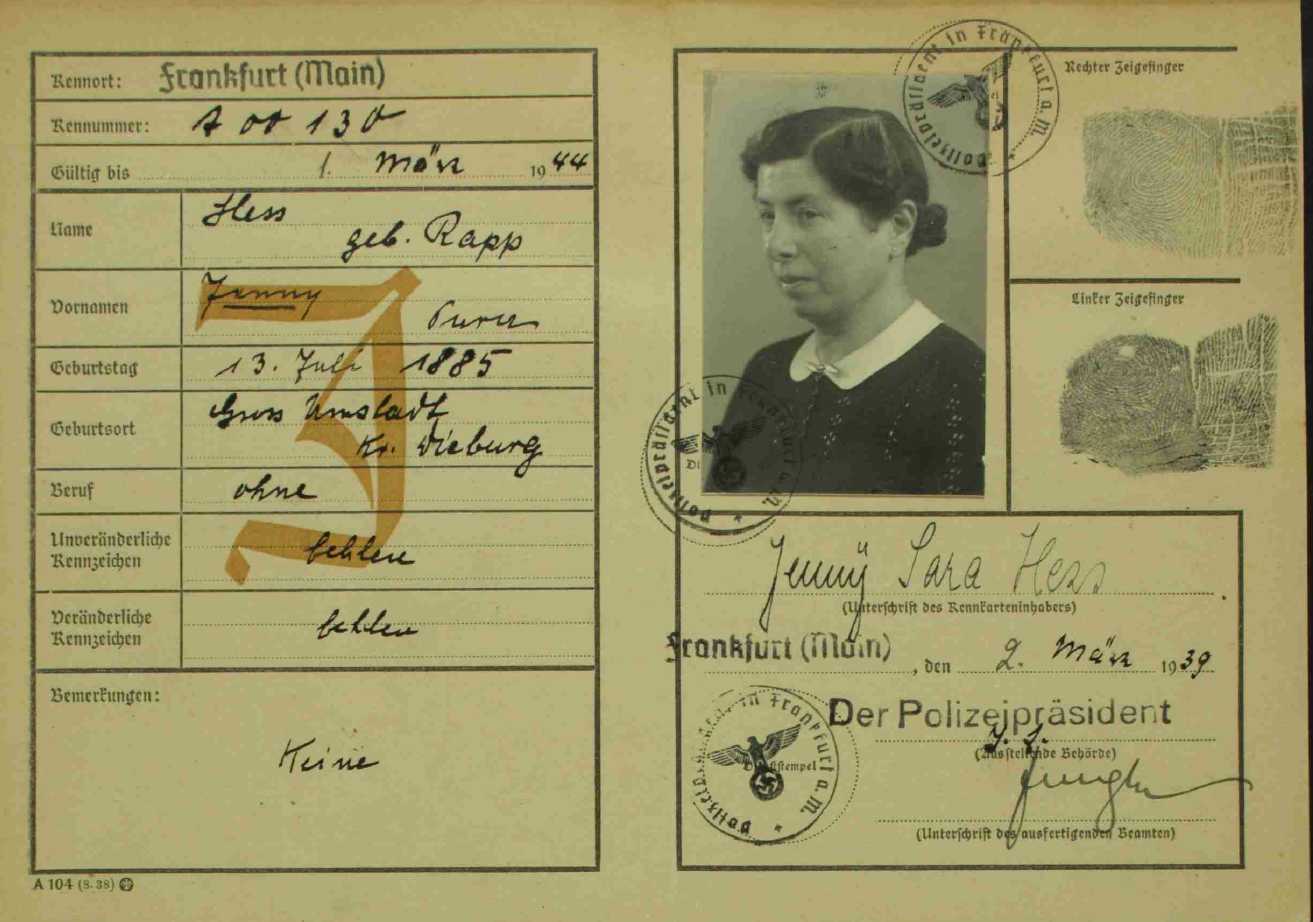 Kennort: Frankfurt (Main)
Kennummer: A 00 130
Gültig bis 1. März 1944
Name Hess
geb. Rapp
Vornamen Jenny
Sara
Geburtstag 13. Juli 1885
Geburtsort Gross Umstadt
Kr. Dieburg
Beruf ohne
Unveränderliche
Kennzeichen fehlen
Veränderliche
Kennzeichen fehlen
Bemerkungen:
Keine
J
A 104 (8. 38)
Polizeipräsident in Frankfurt a. M.
Rechter Zeigefinger
Linker Zeigefinger
Polizeipräsident in Frankfurt a. M.
Jenny Sara Hess
(Unterschrift des Kennkarteninhabers)
Frankfurt (Main), den 2. März 1939
Der Polizeipräsident
(Ausstellende Behörde)
Polizeipräsident in Frankfurt a. M.
Dienststempel
(Unterschrift des ausfertigenden Beamten)